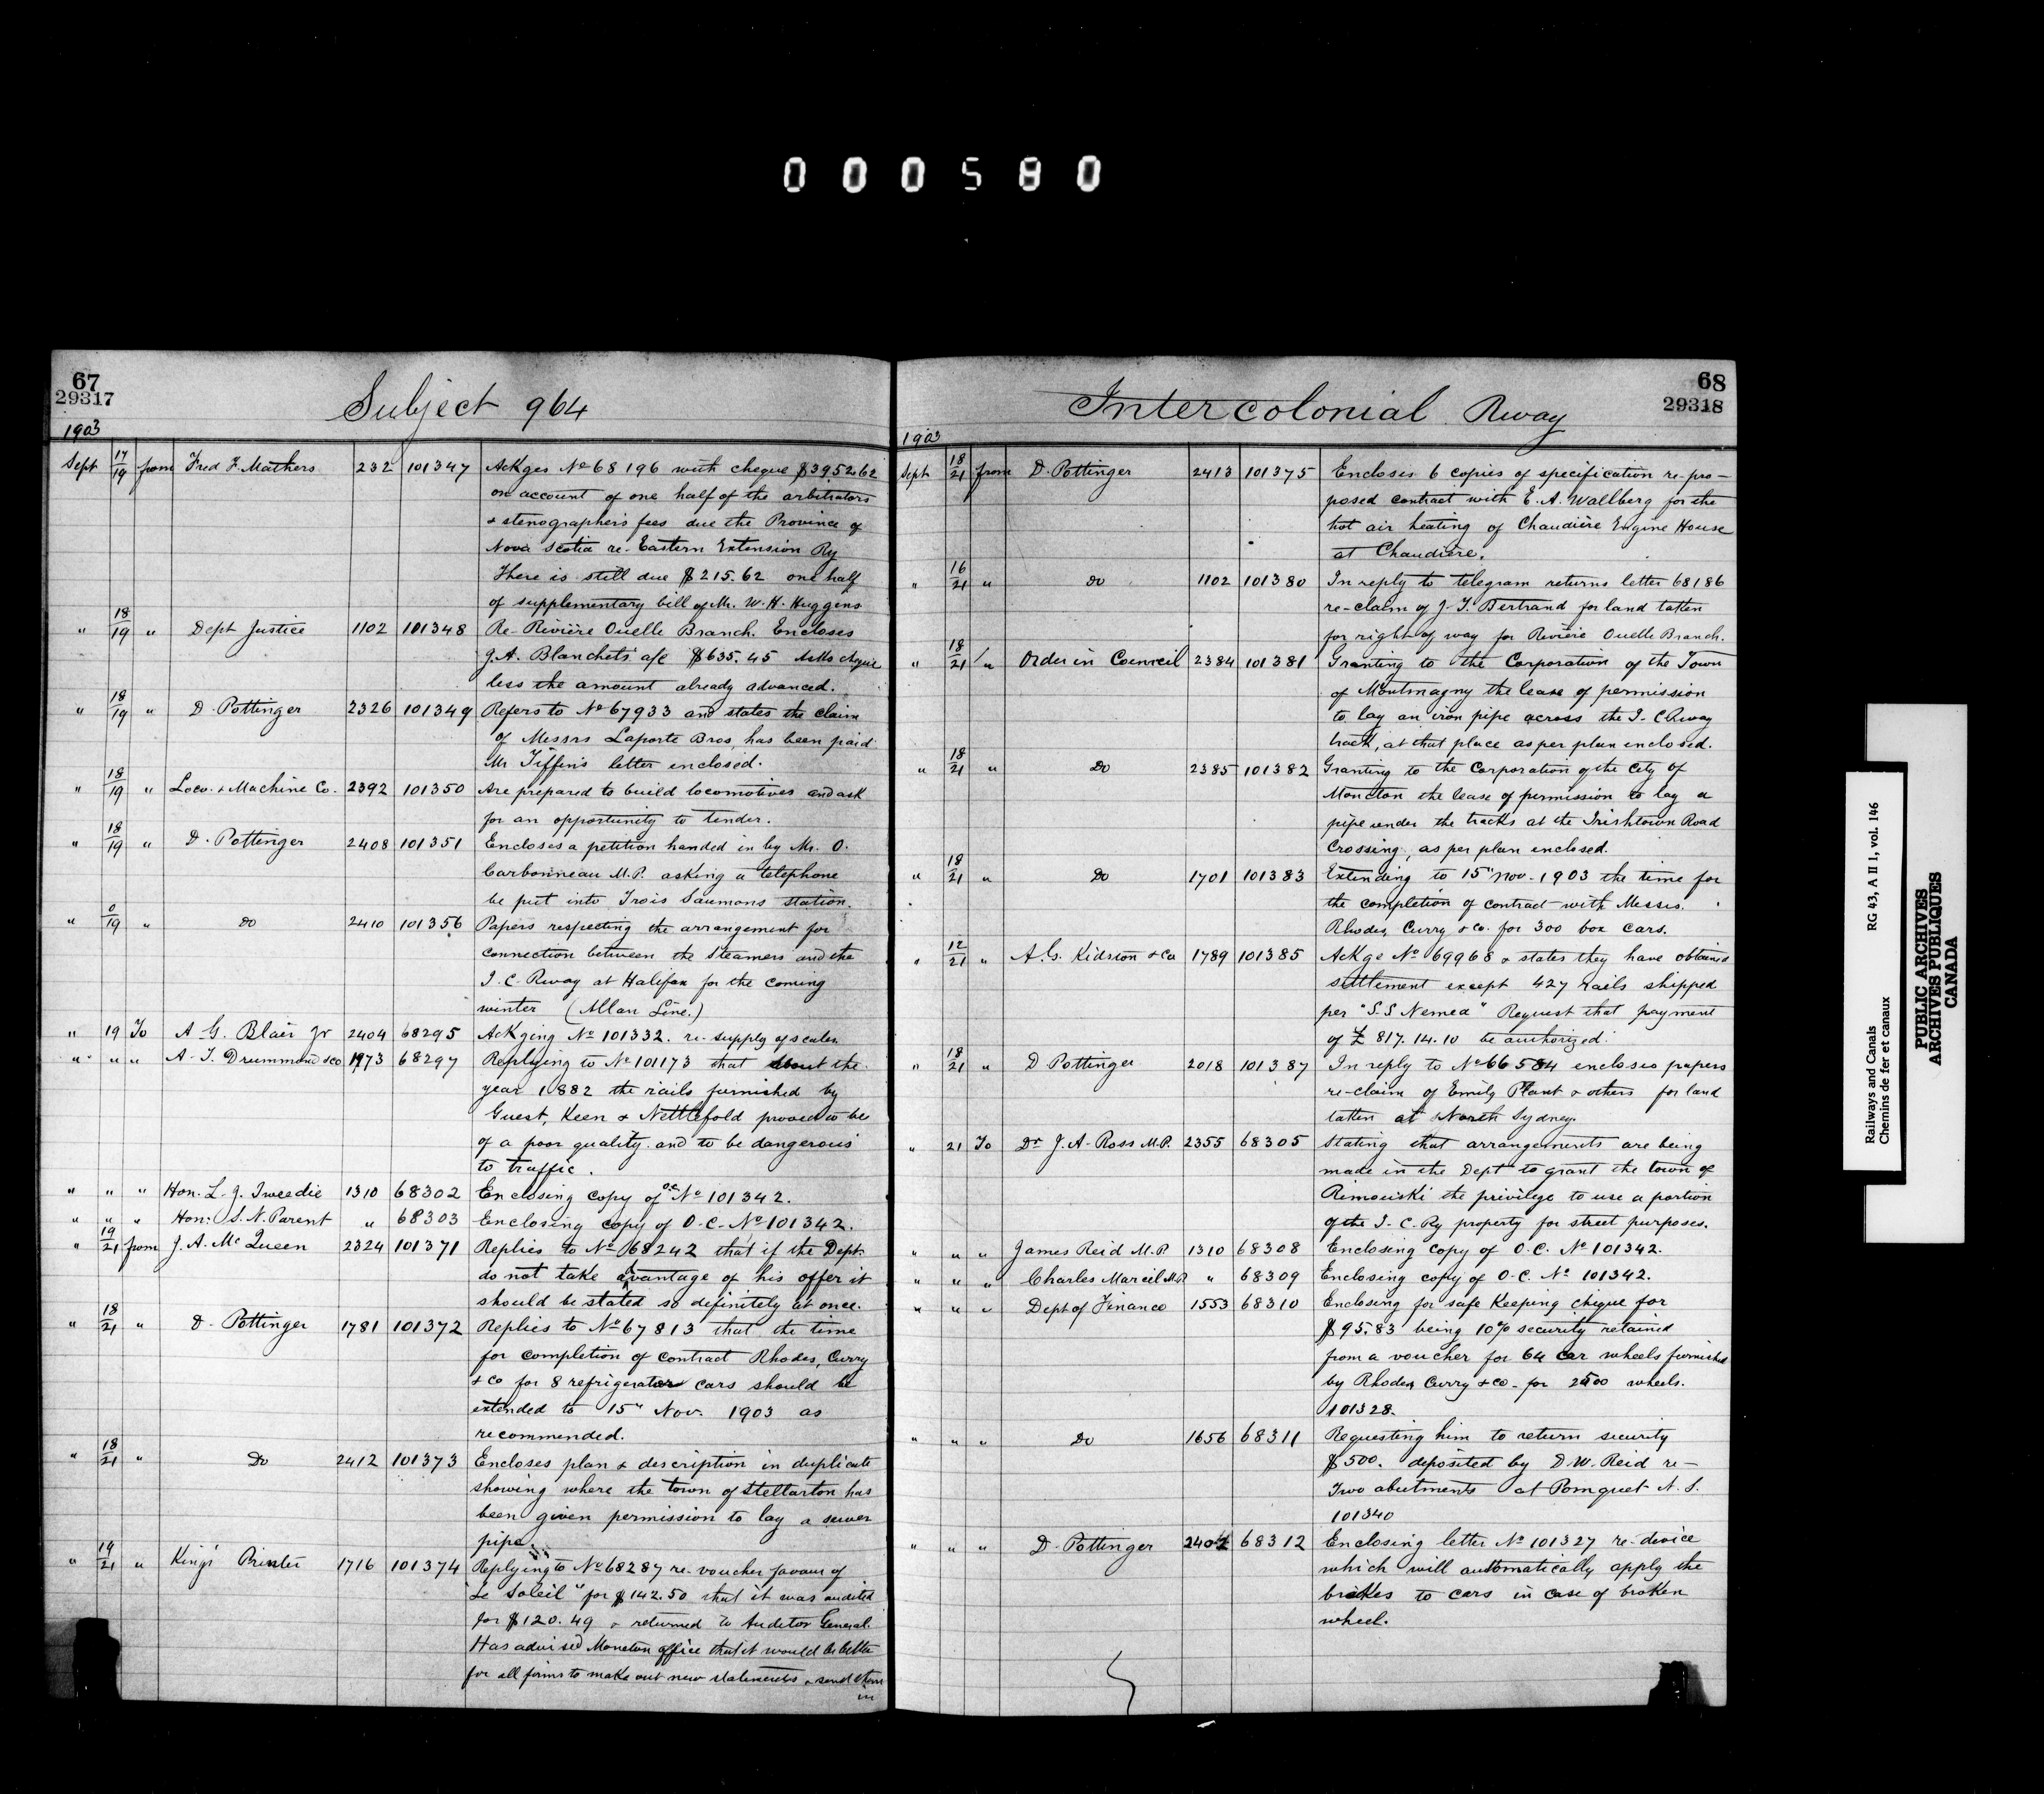 000580
67
29317
Subject 964
1903
Sept 17/19 from Fred F. Mathers 232 101347 Ackges No 68196 with cheque $3952.62
on account of one half of the arbitrators
& stenographers fees due the Province of
Nova Scotia re- Eastern Extension Ry
There is still due $215.62 one half
of supplementary bill of Mr. W. H. Huggens
" 18/19 " Dept Justice 1102 101348 Re- Rivière Ouelle Branch. Encloses
J.A. Blanchets a/c $635.45 Asks cheque
less the amount already advanced.
" 18/19 " D. Pottinger 2326 101349 Refers to No 67933 and states the claim
of Messrs Laporte Bros, has been paid
Mr Tiffin's letter enclosed.
" 18/19 " Loco. & Machine Co. 2392 101350 Are prepared to build locomotives and ask
for an opportunity to tender.
" 18/19 " D. Pottinger 2408 101351 Encloses a petition handed in by Mr. O.
Carbonneau M.P. asking a telephone
be put into Trois Saumons station.
" 0/19 " do 2410 101356 Papers respecting the arrangement for
connection between the Steamers and the
I. C. Rway at Halifax for the coming
winter (Allan Line.)
" 19 To A. G. Blair Jr 2404 68295 Ackging No 101332. re- supply of scales.
" " " A. T. Drummond & co 1973 68297 Replying to No 101173 that about the
year 1882 the rails furnished by
Guest, Keen & Nettlefold proved to be
of a poor quality and to be dangerous
to traffic.
" " " Hon. L. J. Tweedie 1310 68302 Enclosing copy of O.C. No 101342.
" " " Hon: S. N. Parent " 68303 Enclosing copy of O.C. No 101342.
" 19/21 from J. A. McQueen 2324 101371 Replies to No 68242 that if the Dept.
do not take advantage of his offer it
should be stated so definitely at once.
" 18/21 " D. Pottinger 1781 101372 Replies to No 67813 that the time
for completion of contract Rhodes, Curry
& Co for 8 refrigerator cars should be
extended to 15" Nov. 1903 as
recommended.
" 18/21 " Do 2412 101373 Encloses plan & description in duplicate
showing where the town of Stellarton has
been given permission to lay a sewer
pipe.
" 19/21 " King's Printer 1716 101374 Replying to No 68287 re- voucher favour of
"Le Soleil" for $142.50 that it was audited
for $120.49 & returned to Auditor General.
Has advised Moncton office that it would be better
for all firms to make out new statements & send them
in
68
29318
Intercolonial Rway
1903
Sept 18/21 from D. Pottinger 2413 101375 Encloses 6 copies of specification re- pro-
posed contract with E. A. Wallberg for the
hot air heating of Chaudière Engine House
at Chaudière.
" 16/21 " do 1102 101380 In reply to telegram returns letter 68186
re- claim of J-T. Bertrand for land taken
for right of way for Rivière Ouelle Branch.
" 18/21 " Order in Council 2384 101381 Granting to the Corporation of the Town
of Montmagny the lease of permission
to lay an iron pipe across the I-C Rway
track, at that place as per plan enclosed.
" 18/21 " Do 2385 101382 Granting to the Corporation of the City of
Moncton the lease of permission to lay a
pipe under the tracks at the Irishtown Road
Crossing, as per plan enclosed.
" 18/21 " Do 1701 101383 Extending to 15" Nov. 1903 the time for
the completion of contract with Messrs.
Rhodes, Curry & Co. for 300 box cars.
" 12/21 " A.G. Kidston & Co 1789 101385 Ackge No 69968 & states they have obtained
settlement except 427 rails shipped
per "S.S Nemea" Request that payment
of £ 817. 14. 10 be authorized.
" 18/21 " D Pottinger 2018 101387 In reply to No 66584 encloses papers
re- claim of Emily Plant & others for land
taken at North Sydney.
" 21 To Dr J. A. Ross M.P. 2355 68305 Stating that arrangements are being
made in the Dept to grant the town of
Rimouski the privilege to use a portion
of the I-C. Ry property for street purposes.
" " " James Reid M.P. 1310 68308 Enclosing copy of O.C. No 101342.
" " " Charles Marcil M.P. " 68309 Enclosing copy of O.C. No 101342.
" " " Dept of Finance 1553 68310 Enclosing for safe Keeping cheque for
$95.83 being 10% security retained
from a voucher for 64 car wheels furnished
by Rhodes Curry & Co- for 2500 wheels.
101328.
" " " Do 1656 68311 Requesting him to return security
$500. deposited by D. W. Reid re-
Two abutments at Pomquet N.S.
101340
" " " D. Pottinger 2402 68312 Enclosing letter No 101327 re- device
which will automatically apply the
brakes to cars in case of broken
wheel.
Railways and Canals RG 43, A II 1, vol. 146
Chemins de fer et canaux
PUBLIC ARCHIVES
ARCHIVES PUBLIQUES
CANADA